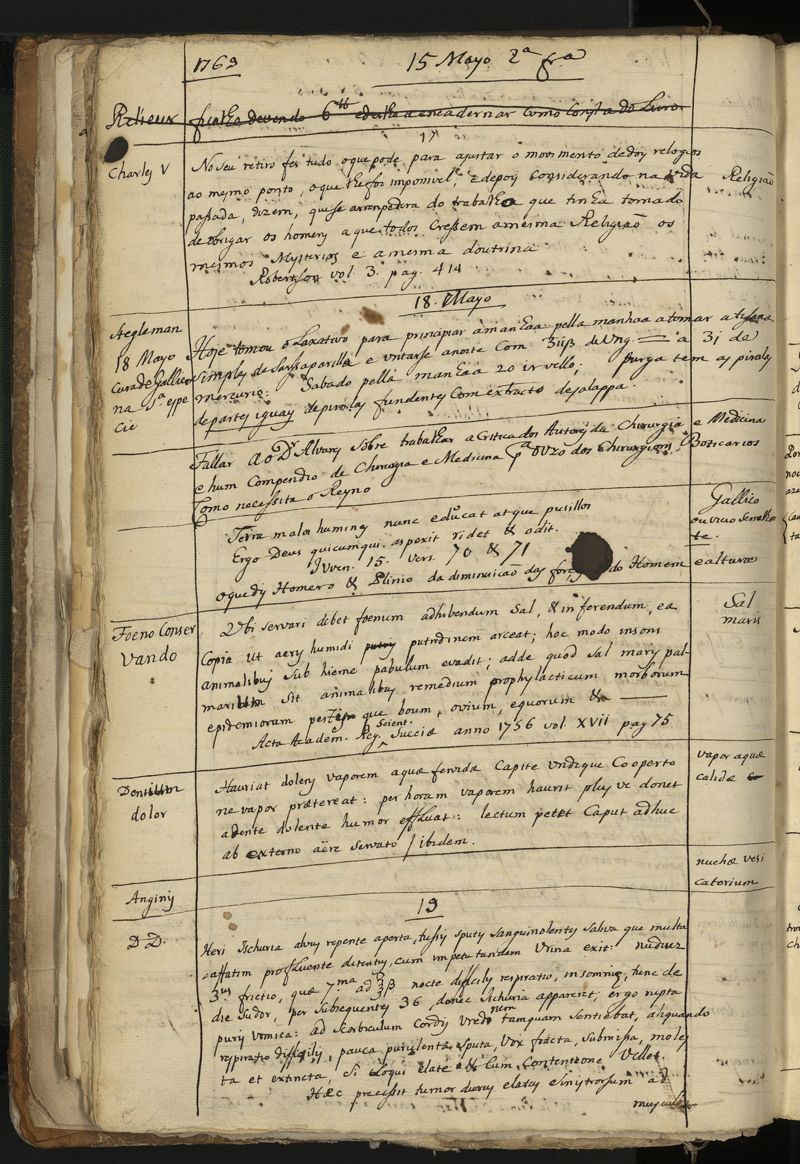 1769
15 Mayo 2ª fr.ª
Relieur
ficalha devendo 6tt edelha a encadernar como Consta do Livro
17
Charles V
No seu retiro fes tudo oque pode para ajustar o movimento de dois relogios
ao mesmo ponto, oque lhe foi imposivel; e depois Considerando na vida
Religiaõ
passada, dizem, que se arrependera do trabalho que tinha tomado
de obrigar os homens a que todos Cressem a mesma Religiaõ os
mesmos Mysterios e a mesma doutrina
Robertson vol 3. pag. 414
18. Mayo
Stegleman
18 Mayo
Cura de Gallico
na Sª espe
cie
Hoje tomou o Laxativo para prinsipiar amanhaa pella manhaa a tomar a tisana
simples de Sarsaparilla e untarse a noite Com ʒiiß de Ung. = a ʒi de
mercurio: Sabado pella manhaa 20 purga tem as pirolas
de partes iguais de pirolas fundentes Com extracto de jalappa.
Fallar Ao Dr Alvares Sobre trabalhar a Critica dos Autores da Chirurgia e Medicina
e hum Compendio de Chirurgia e Medicina pª o Uzo dos Chirurgioins Boticarios
Como necessita o Reyno
Terra malos humines nunc educat atque pusillos
Ergo Deus quicumqui aspexit ridet & odit.
Juven. 15. vers 70 & 71
Gallico
te.
oque dis Homero & Plinio da diminuicaõ das do Homem e altura
Foeno Conser
vando
Ubi servari debet foenum adhibendum Sal, & in ferendum, ea
Copia ut aeris humidi putris putridinem arceat; hoc modo insons
animalibus Sub hieme pabulum evadit; adde quod Sal maris pal
marium Sit animalibus remedium prophylacticum morborum
epidemiorum pestisque boum, ovium, equorum &
Acta Academ. Reg. Scient. Sueciæ anno 1756 vol XVII pag 75
Sal
maris
Dentium
dolor
Hauriat dolens vaporem aquæ fervidæ Capite undique Cooperto
ne vapor prætereat: per horam vaporem hauriat plus ve donec
a dente dolente humor effluat: lectum petet Caput adhuc
ab externo aëre servato / ibidem.
vapor aquæ
calidæ
Anginis
nuchæ vesi
catorium
19
D D.
Heri Ischuria alvus repente aperta, tussis sputis sanguinolentis Saliva que multa
affatim profluente detentus, cum impetu tandem Urina exit: nudius
3us frictio, quæ 7ma ad ʒß nocte difficilis respiratio, insomnis, tunc de
die Sudor, per Subsequentes 36, donec Ischuria appareret, ergo rupta
puris vomica: ad Scorbiculum Cordis Uredinem tamquam sentiebat, aliquando
respiratio difficilis, pauca purulenta Sputa, Vox fracta, Submissa, moles
ta et extincta, Si loqui elate & Cum Contensione Vellet
Hæc precessit tumor durus elatus Sinistrorsum ad
musculos